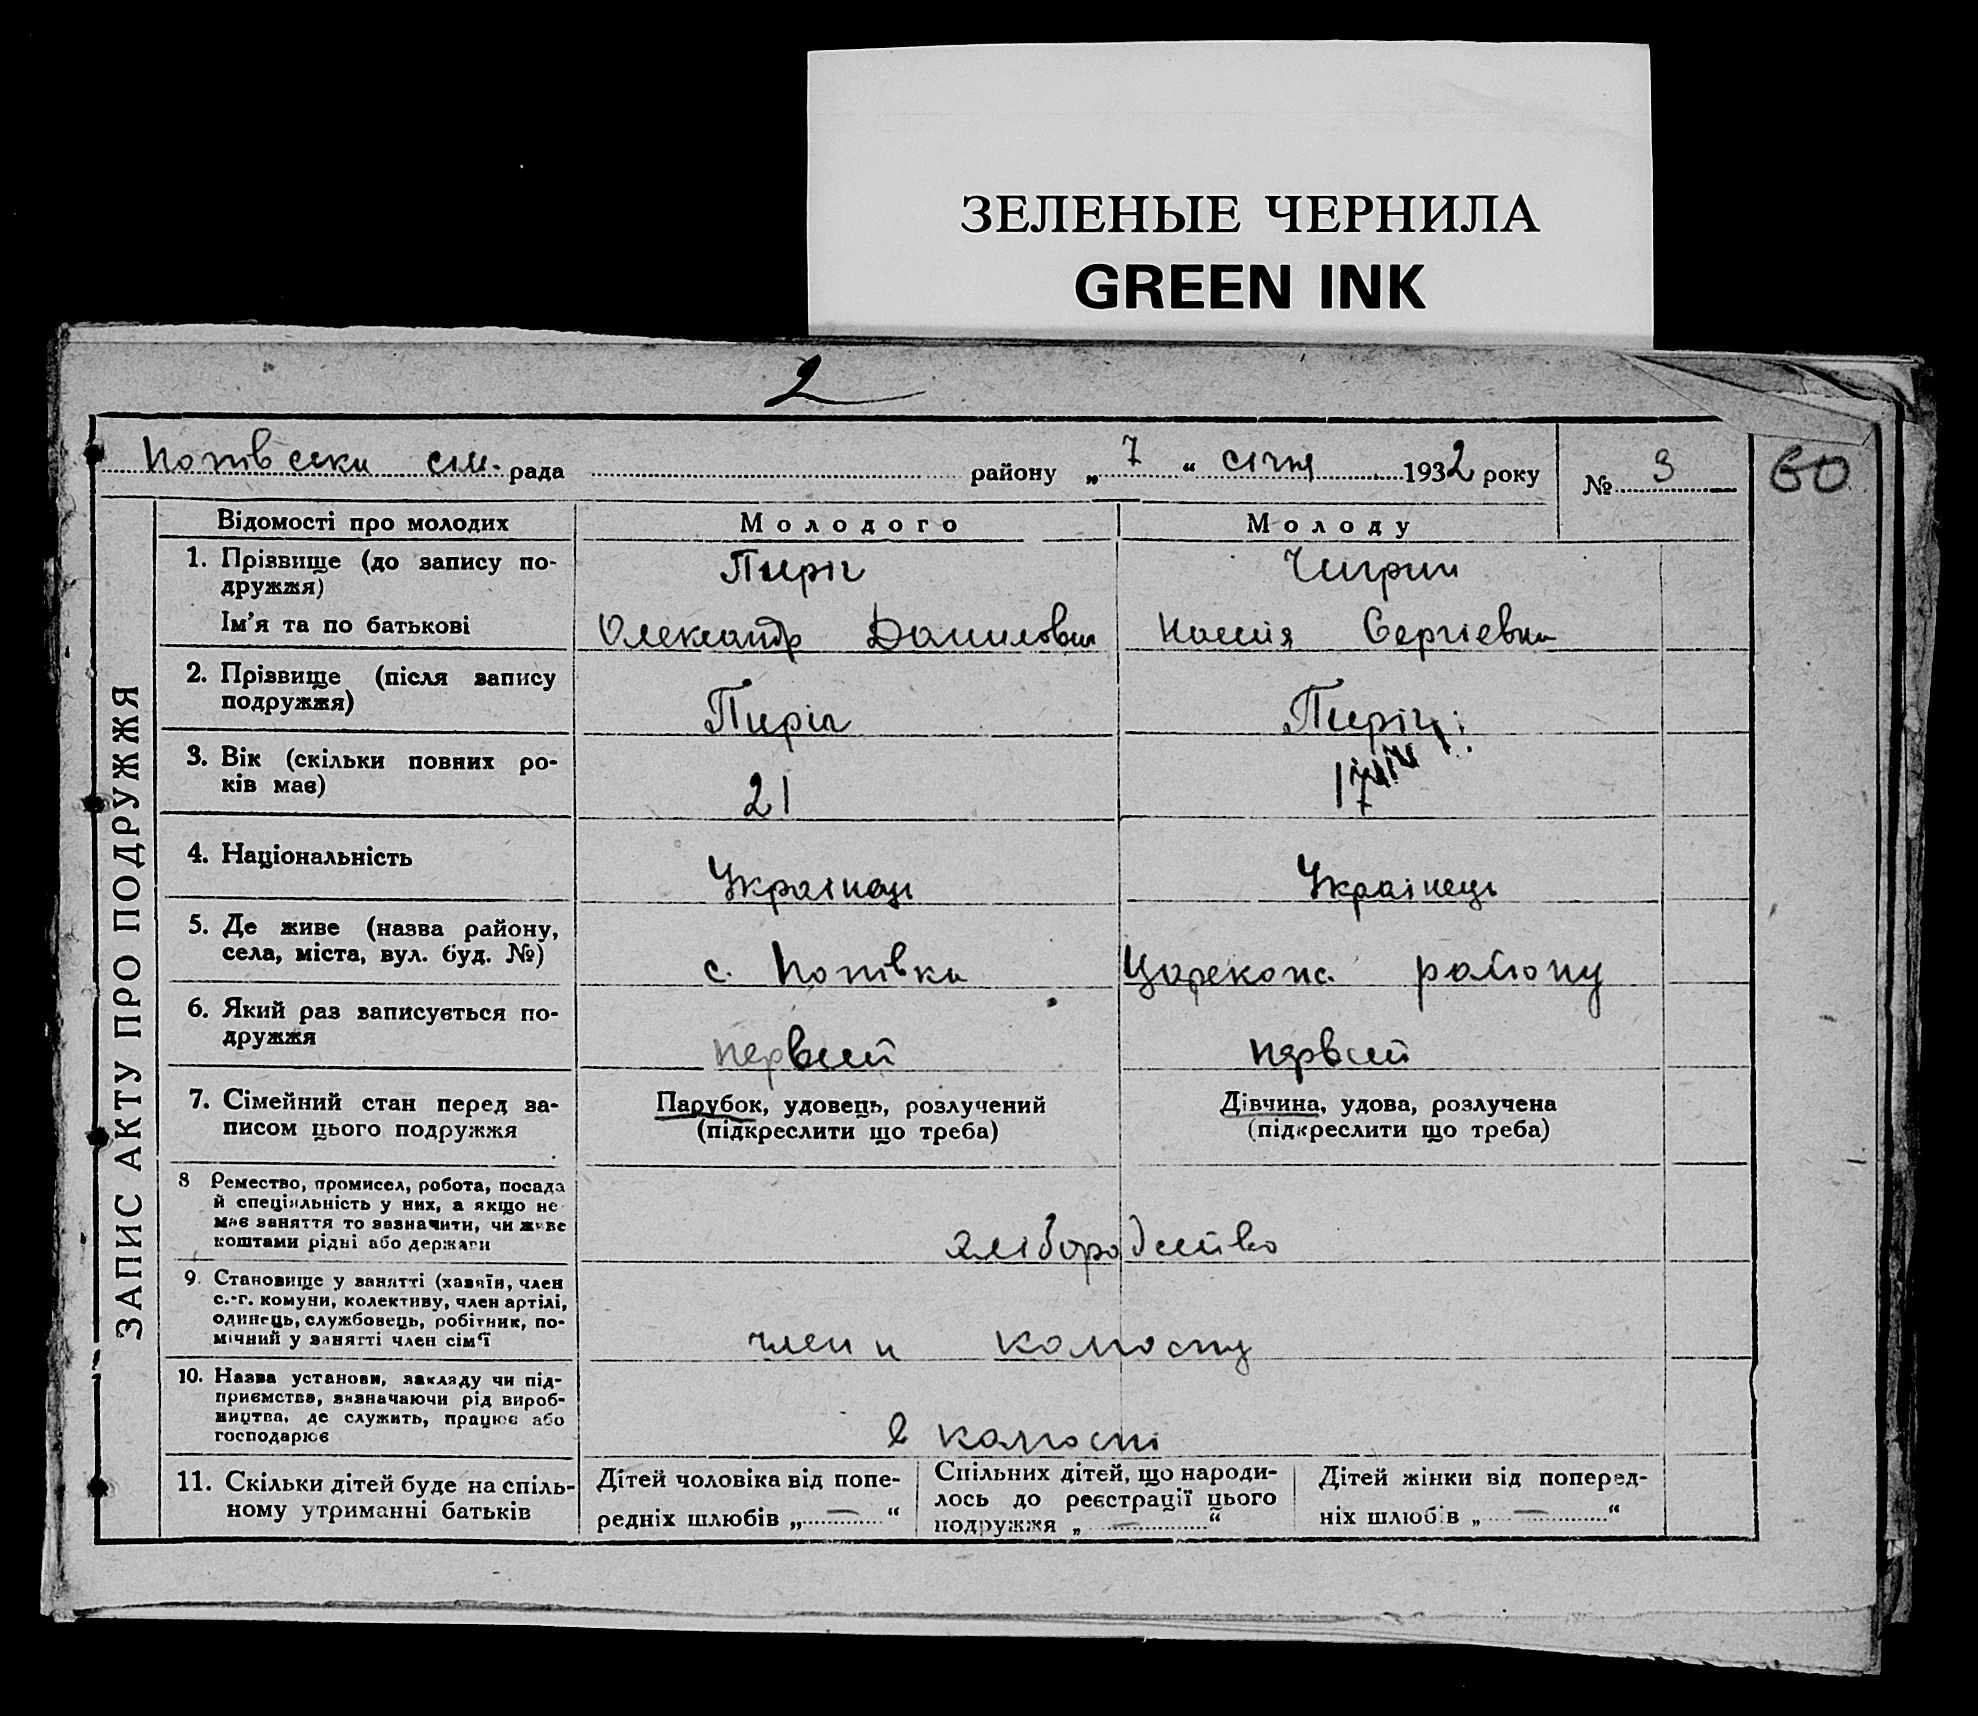 ЗЕЛЕНЫЕ ЧЕРНИЛА
GREEN INK
2
Попівська сіл. рада района „ 7 “ січня 1932 року № 3
60
ЗАПИС АКТУ ПРО ПОДРУЖЖЯ
Відомості про молодих Молодого Молоду
1. Прізвище (до запису по-
дружжя) Пиріг Чигрин
Ім’я та по батькові Олександр Данилович Сергіевна
2. Прізвище (після запису
подружжя) Пиріг Пиріг
3. Вік (скільки повних ро-
ків має) 21 17
4. Національність Українець Українець
5. Де живе (назва району,
села, міста, вул. буд. №) с. Попівка району
6. Який раз записується по-
дружжя первий первий
7. Сімейний стан перед за-
писом цього подружжя
Парубок, удовець, розлучений
(підкреслити що треба)
Дівчина, удова, розлучена
(підкреслити що треба)
8 Ремество, промисел, робота, посада
й спеціяльність у них, а якщо не
має заняття то зазначити, чи живе
коштами рідні або держави
хліборобство
9. Становище у занятті (хазяїн, член
с.-г. комуни, колективу, член артілі,
одинець, службовець, робітник, по-
мічний у занятті член сім’ї
члени колгоспу
10. Назва установи, закладу чи під-
приємства, зазначаючи рід вироб-
ництва, де служить, працює або
господарює
в колгоспі
11. Скільки дітей буде на спіль-
ному утриманні батьків
Дітей чоловіка від попе-
редніх шлюбів „ — “
Спільних дітей, що народи-
лось до реєстрації цього
подружжя „ — “
Дітей жінки від поперед-
ніх шлюбів „ — “